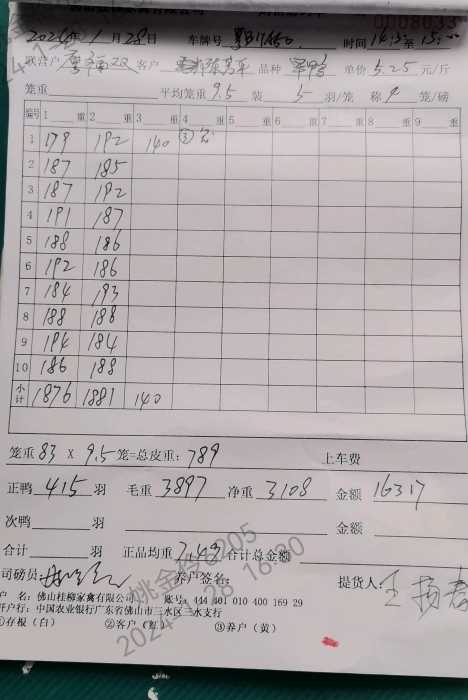 0008033
2024年1月28日 车牌号 时间 14:3 至 15:
联营户 客户 品种 单价 5.25 元/斤
笼重 平均笼重 9.5 装 5 羽/笼 称 4 笼/磅
编号 1 重 2 重 3 重 4 重 5 重 6 重 7 重 8 重 9 重
1 179 192 140 ③
2 187 185
3 187 192
4 191 187
5 188 186
6 192 186
7 184 193
8 188 188
9 194 184
10 186 188
小计 1876 1881 140
笼重 83 X 9.5 笼=总皮重: 789 上车费
正鸭 415 羽 毛重 3897 净重 3108 金额 16317
次鸭 羽 金额
合计 羽 正品均重 7.49 合计总金额
司磅员: 养户签名: 提货人:
户 名: 佛山桂柳家禽有限公司 账号: 444 401 010 400 169 29
开户行: 中国农业银行广东省佛山市三水区三水支行
①存根(白) ②客户(红) ③养户(黄)
姚金玲6205
2024 1 28 16:30